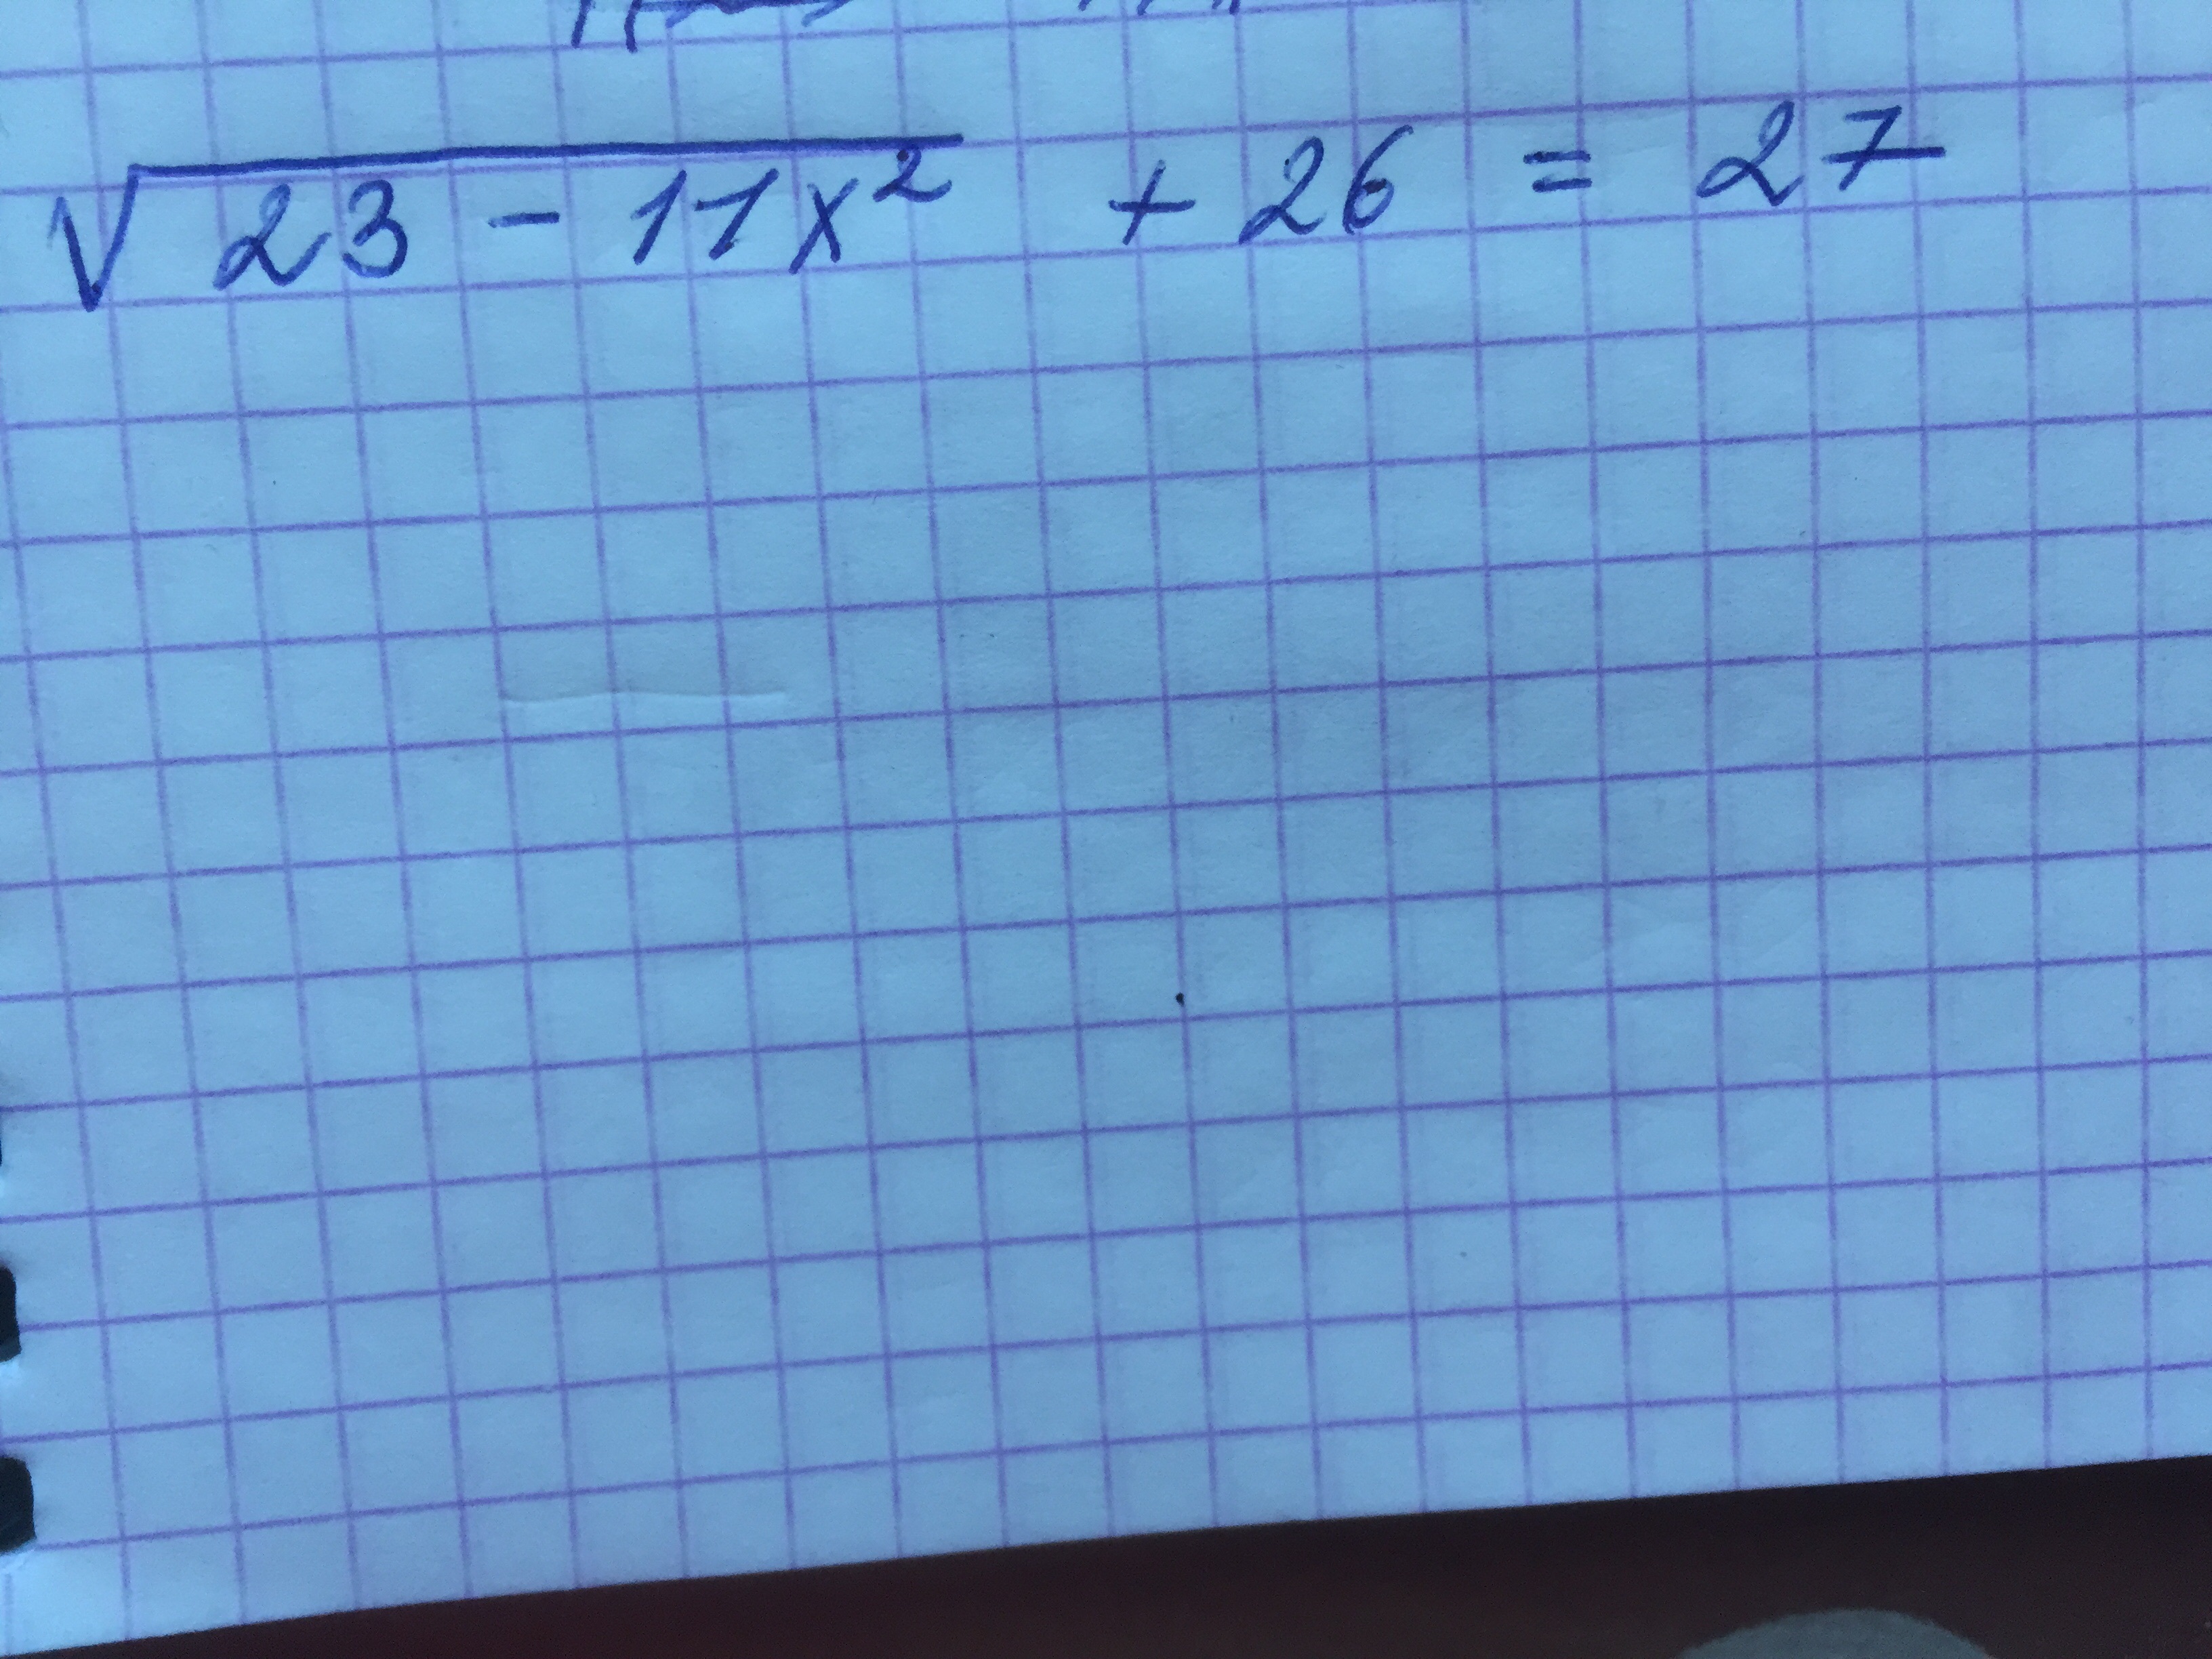 √23 - 11x² + 26 = 27